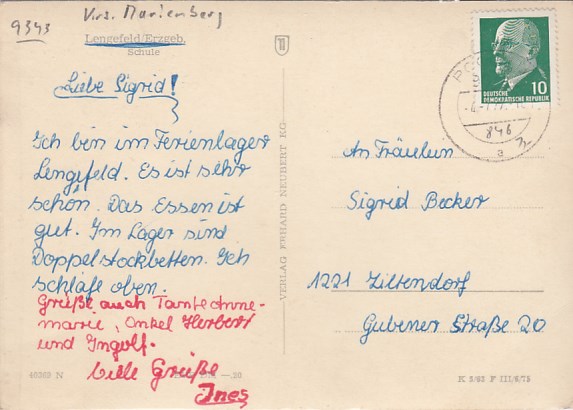 9343 Krs. Marienberg
Lengefeld/Erzgeb.
Schule
Liebe Sigrid!
Ich bin im Ferienlager
Lengefeld. Es ist sehr
schön. Das Essen ist
gut. Im Lager sind
Doppelstockbetten. Ich
schlafe oben.
Grüße auch Tante Anne-
marie, Onkel Herbert
und Ingolf.
Viele Grüße
Ines
46269 N
—.20
VERLAG ERHARD NEUBERT KG
DEUTSCHE
DEMOKRATISCHE REPUBLIK
10
846
a
An Fräulein
Sigrid Becker
1221 Ziltendorf
Gubener Straße 20
K 3/63 F III/6/75